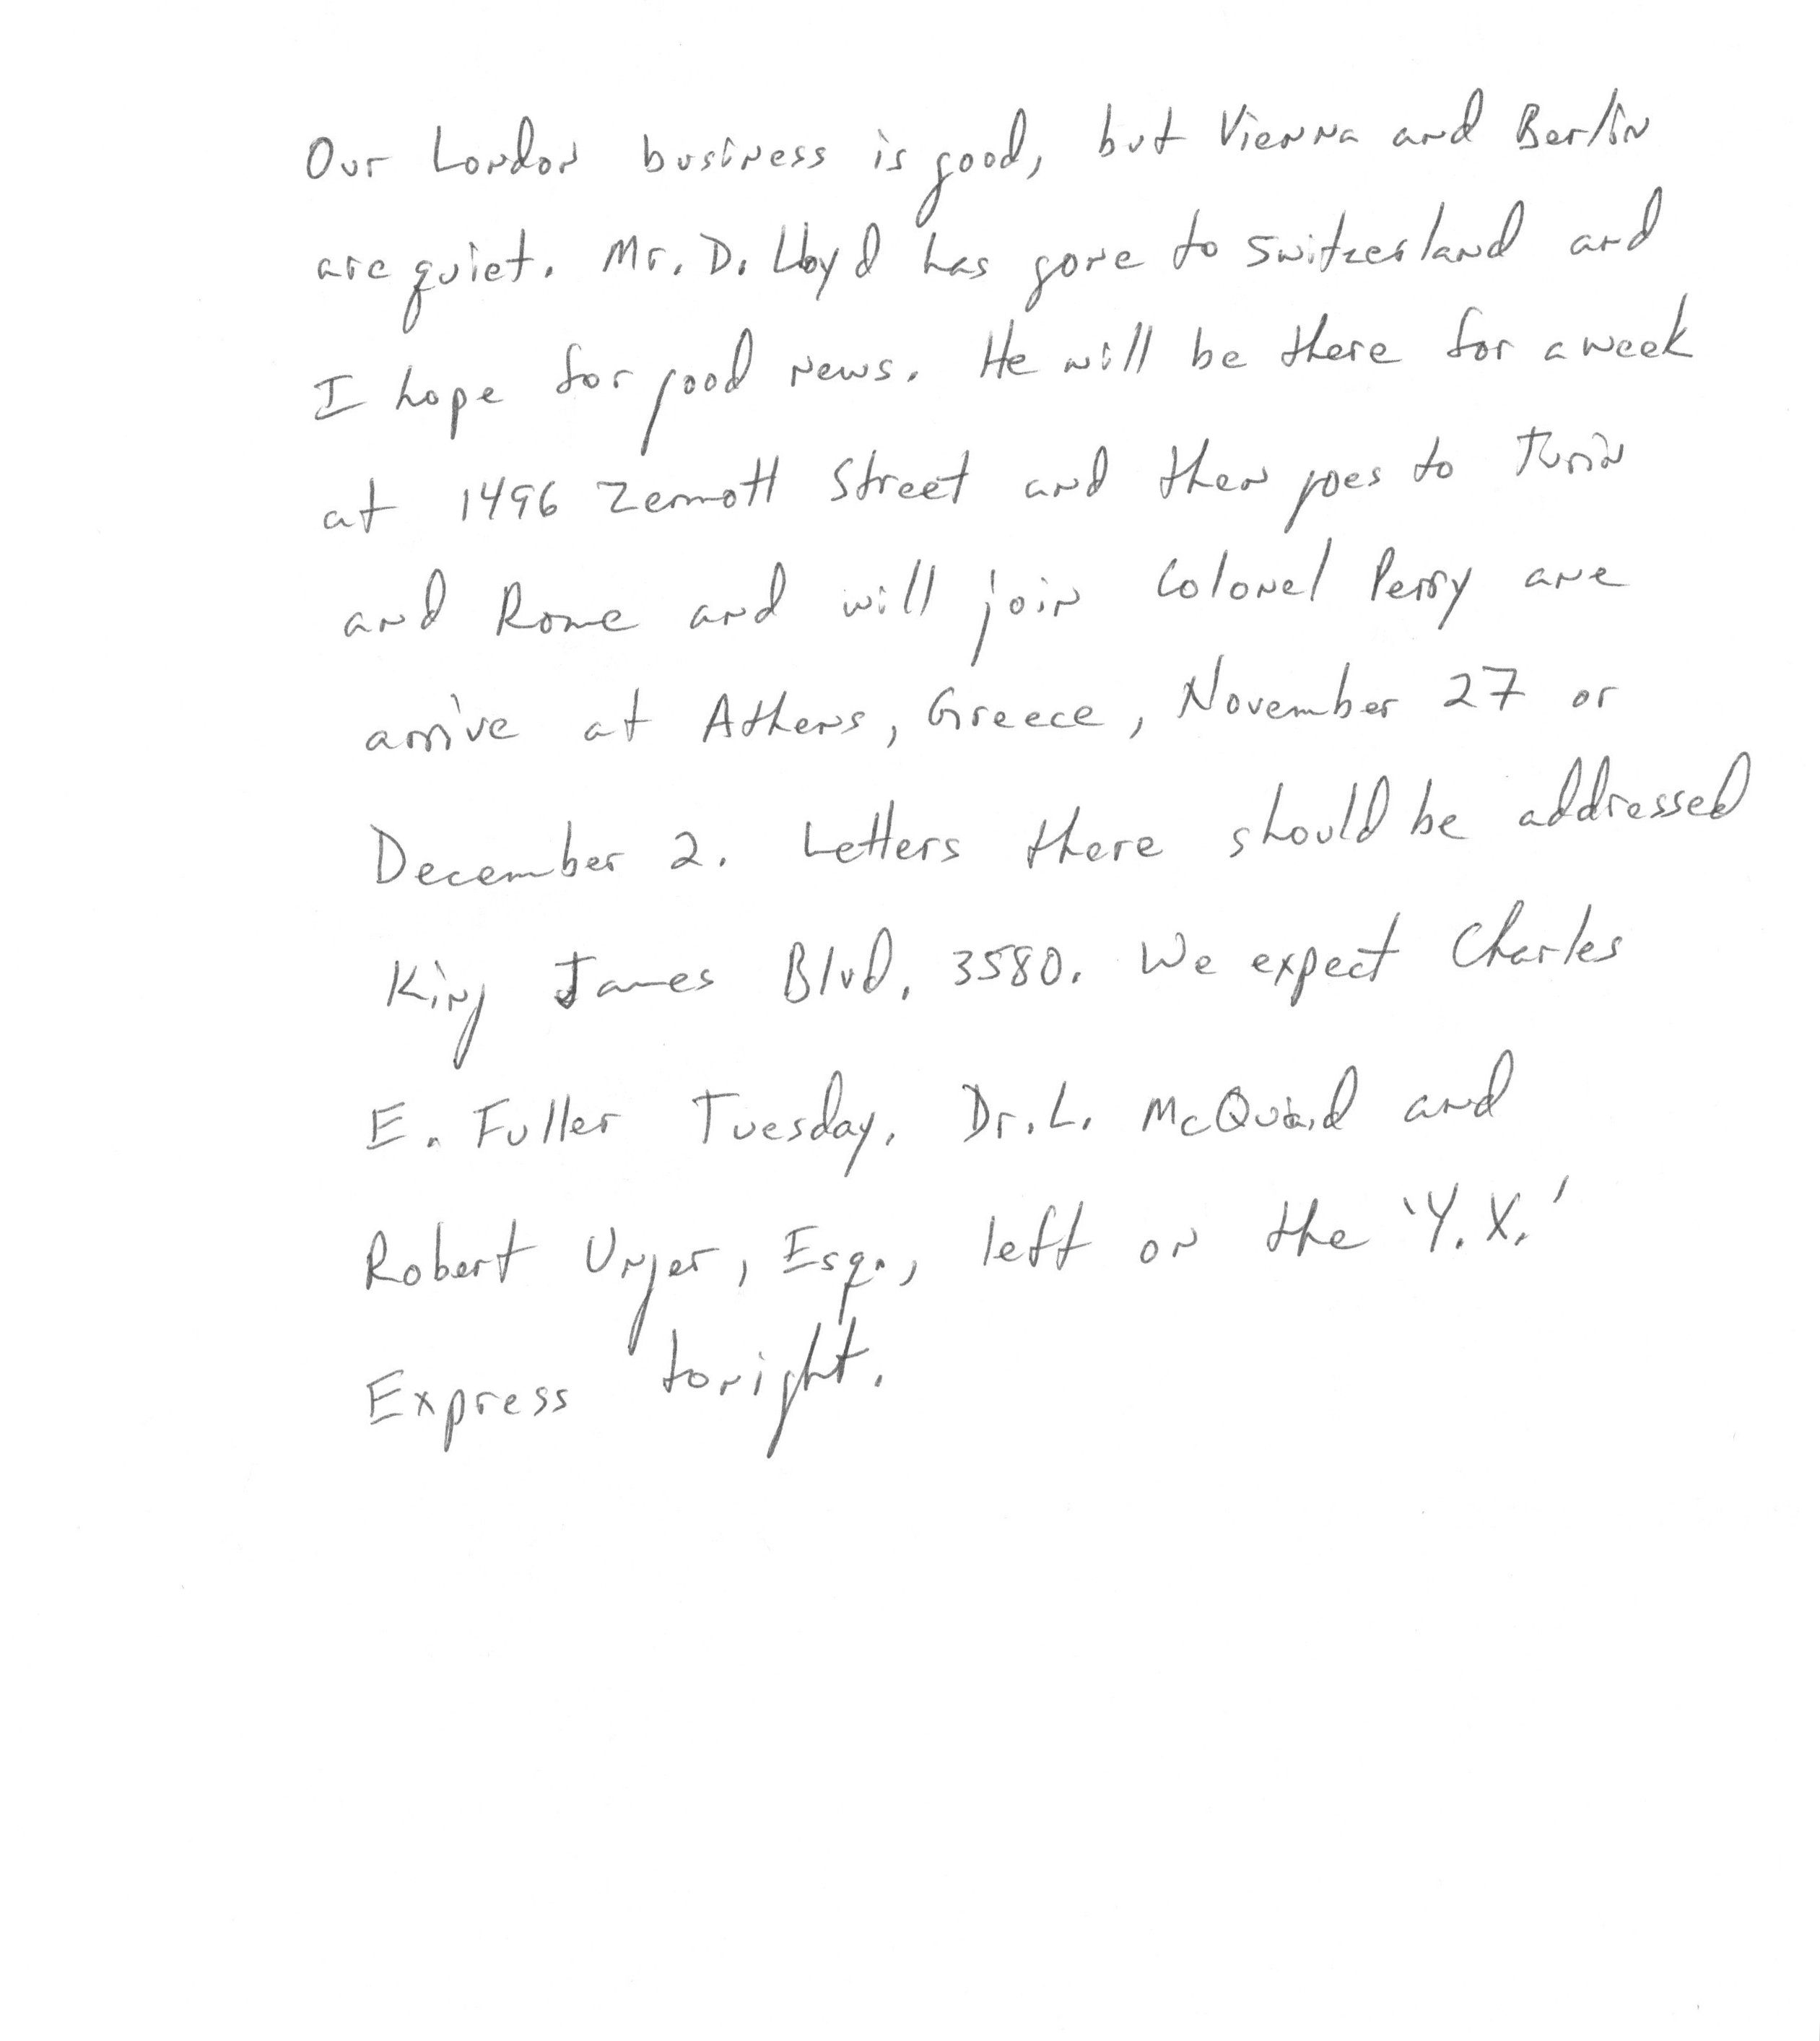 Our London business is good, but Vienna and Berlin
are quiet. Mr. D. Lloyd has gone to Switzerland and
I hope for good news. He will be there for a week
at 1496 Zermott Street and then goes to Turin
and Rome and will join Colonel Perry ane
arrive at Athens, Greece, November 27 or
December 2. Letters there should be addressed
King James Blvd. 3580. We expect Charles
E. Fuller Tuesday. Dr. L. McQuaid and
Robert Unger, Esq., left on the 'Y.X.'
Express tonight.